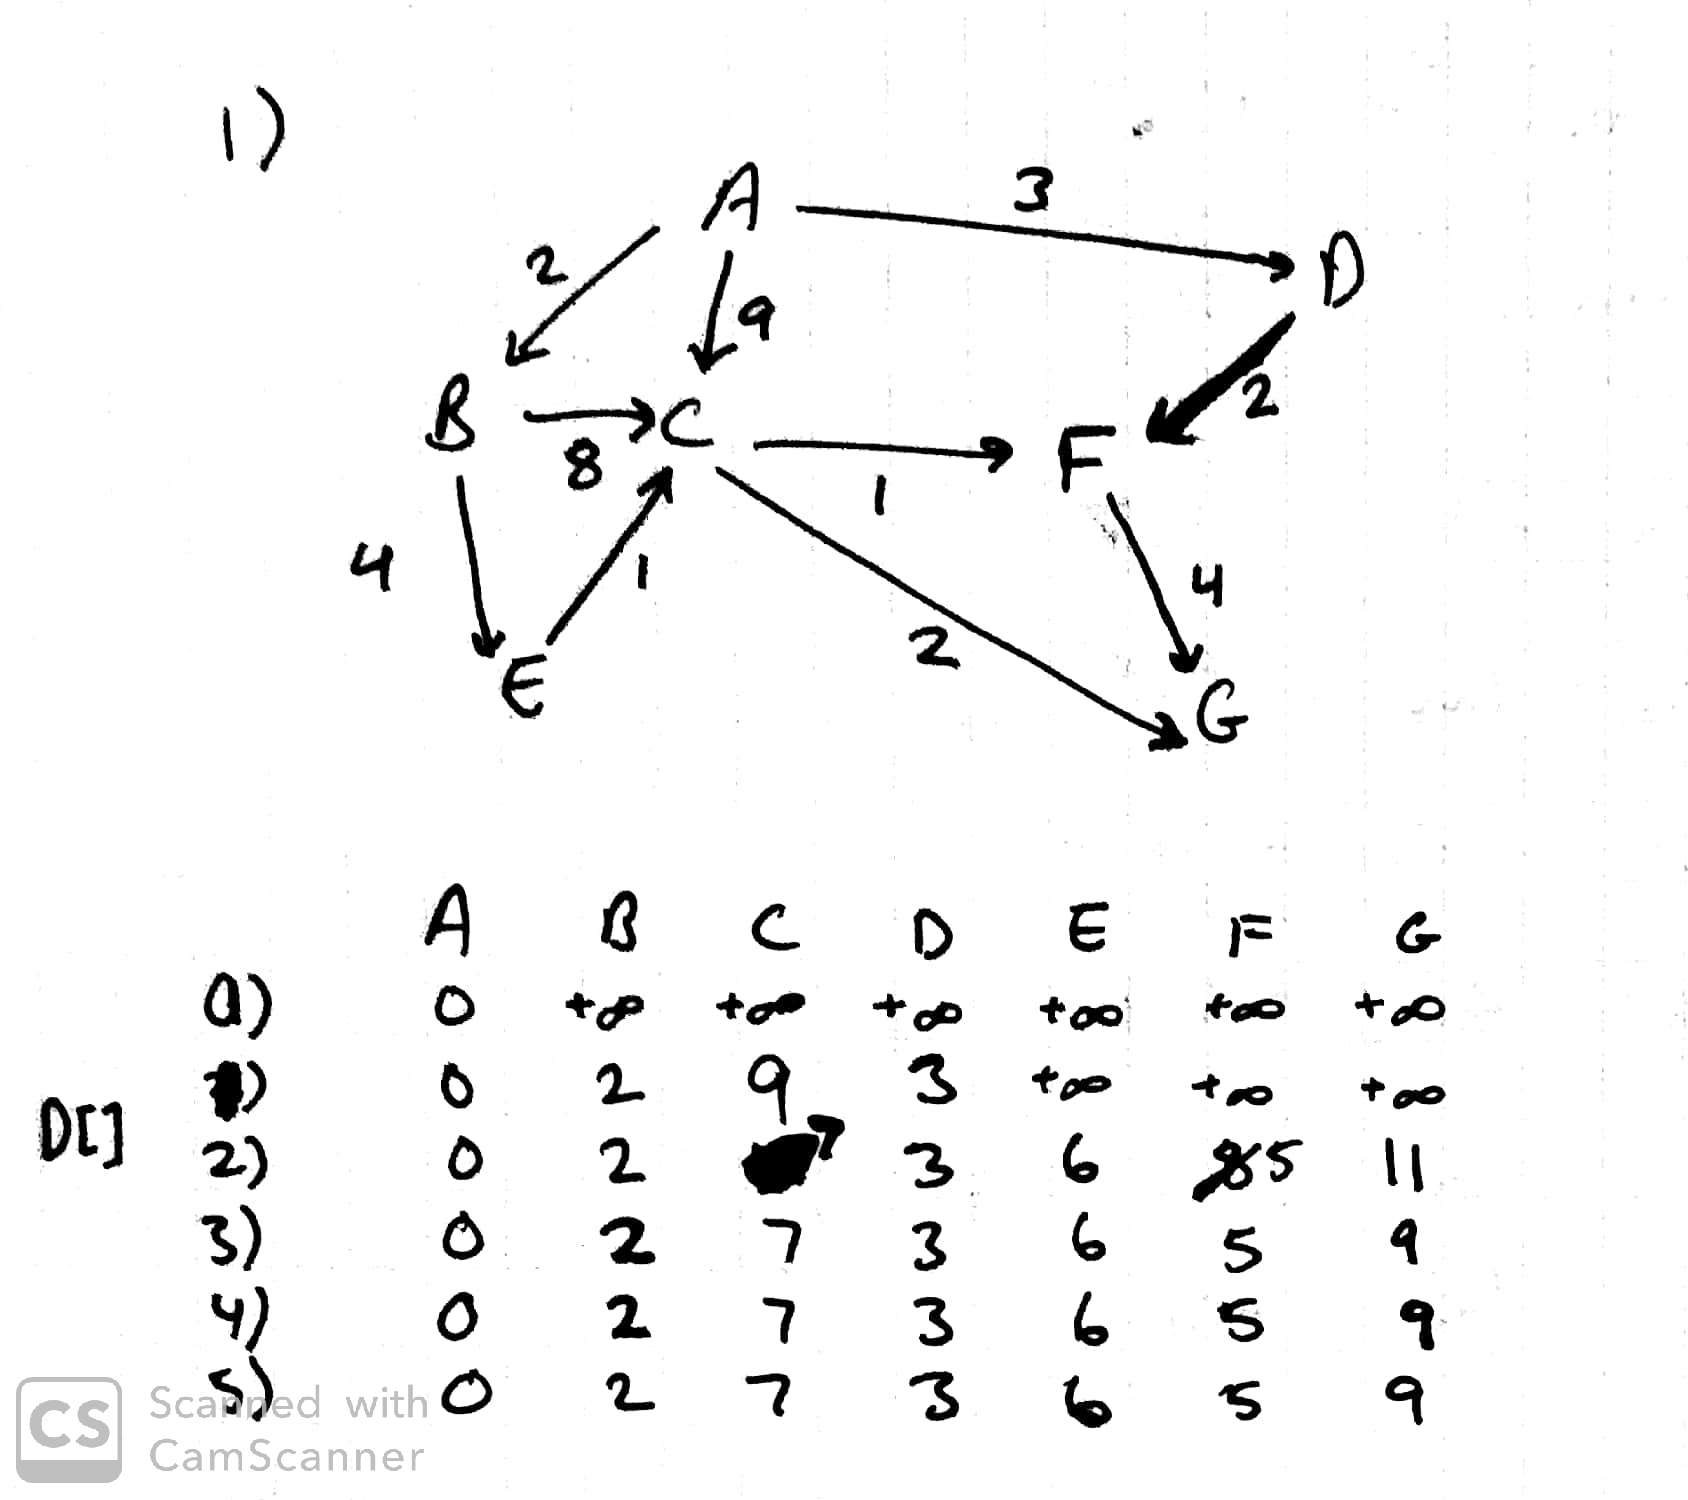 1)
A 3
D
2
9
B C F 2
8
1
4 1 4
2
E
G
A B C D E F G
0) 0 +∞ +∞ +∞ +∞ +∞ +∞
1) 0 2 9 3 +∞ +∞ +∞
D[] 2) 0 2 7 3 6 5 11
3) 0 2 7 3 6 5 9
4) 0 2 7 3 6 5 9
5) 0 2 7 3 6 5 9
CS Scanned with
CamScanner